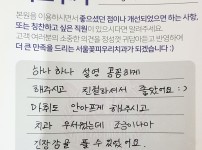 본원을 이용하시면서 좋으셨던 점이나 개선되었으면 하는 사항,
또는 칭찬하고 싶은 직원이 있으시다면 알려주세요.
고객 여러분의 소중한 의견을 정성껏 귀담아듣고 반영하여
더 큰 만족을 드리는 서울꽃피우리치과가 되겠습니다 :)
하나 하나 설명 꼼꼼하게
해주시고 친절하셔서 좋았어요 :)
마취도 안아프게 해주시고
치과 무서웠는데 조금이나마
긴장감을 풀 수 있었어요.